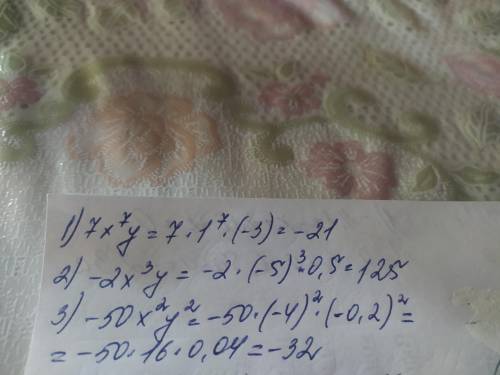 1) 7x⁷y = 7 · 1⁷ · (-3) = -21
2) -2x³y = -2 · (-5)³ · 0,5 = 125
3) -50x²y² = -50 · (-4)² · (-0,2)² =
= -50 · 16 · 0,04 = -32